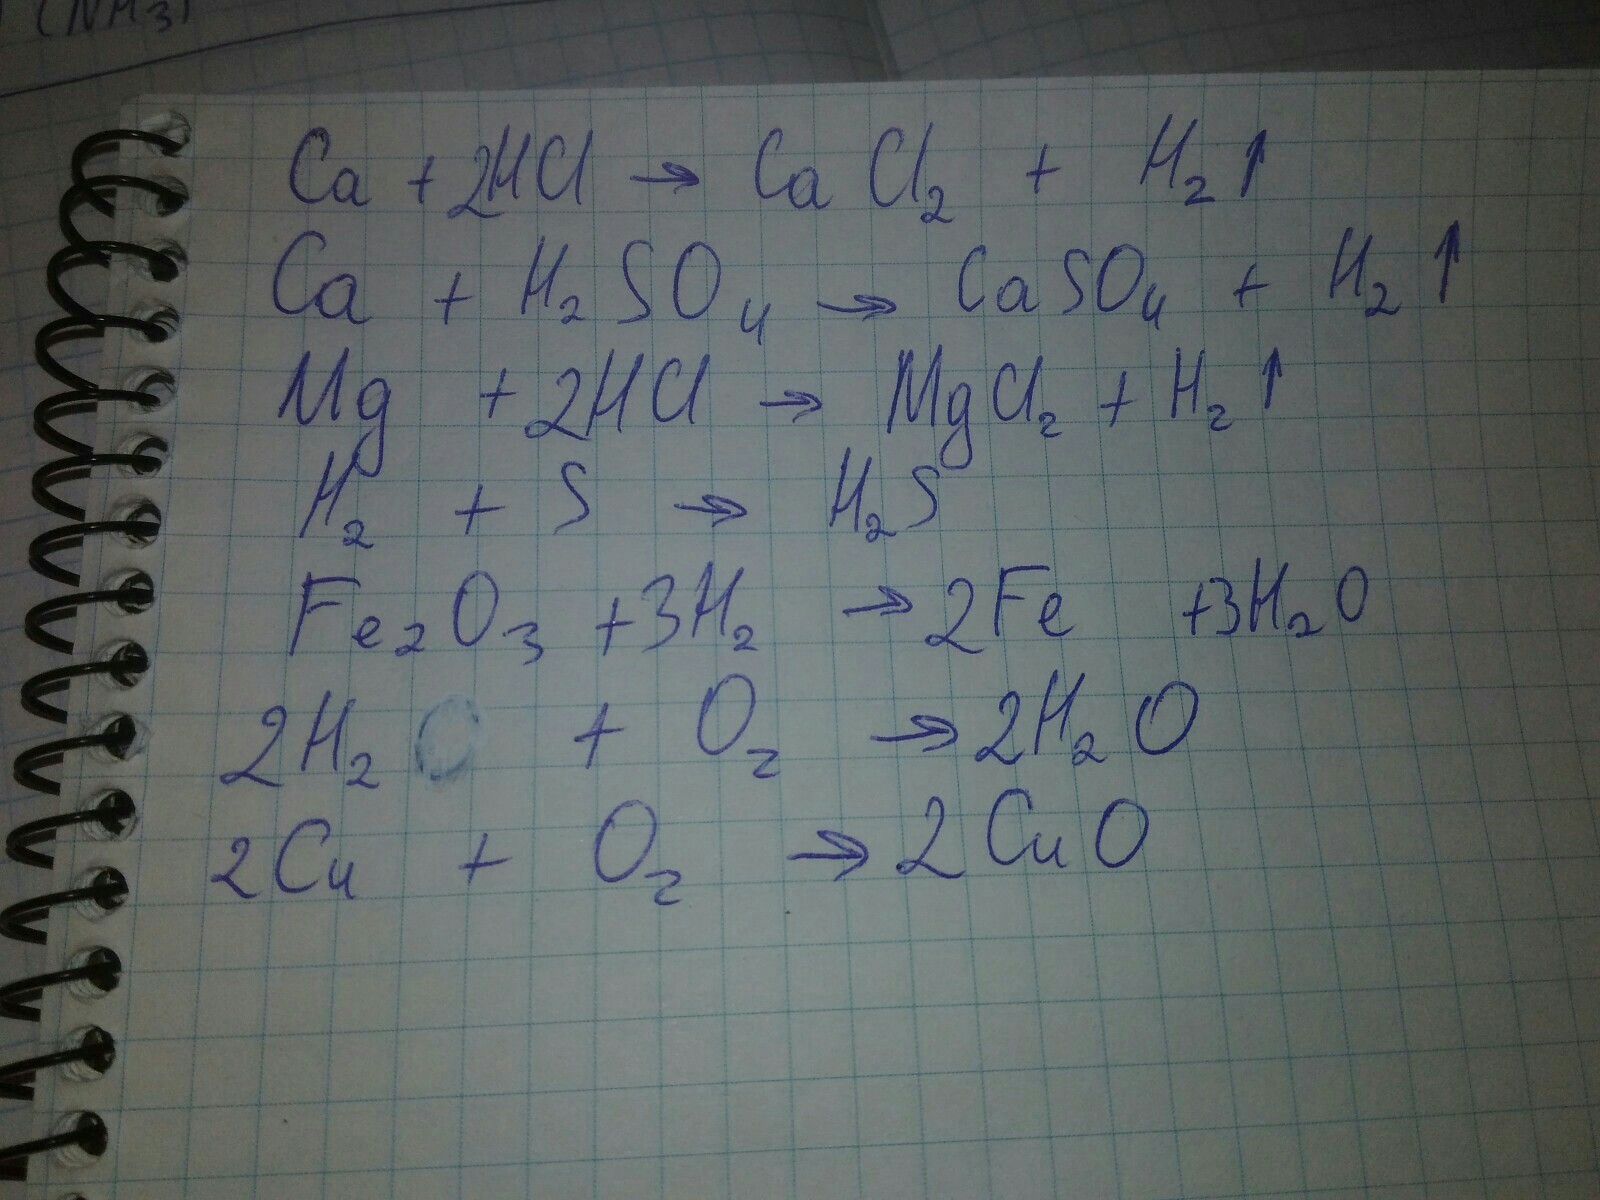 (NH₃)
Ca + 2HCl → CaCl₂ + H₂↑
Ca + H₂SO₄ → CaSO₄ + H₂↑
Mg + 2HCl → MgCl₂ + H₂↑
H₂ + S → H₂S
Fe₂O₃ + 3H₂ → 2Fe + 3H₂O
2H₂ + O₂ → 2H₂O
2Cu + O₂ → 2CuO